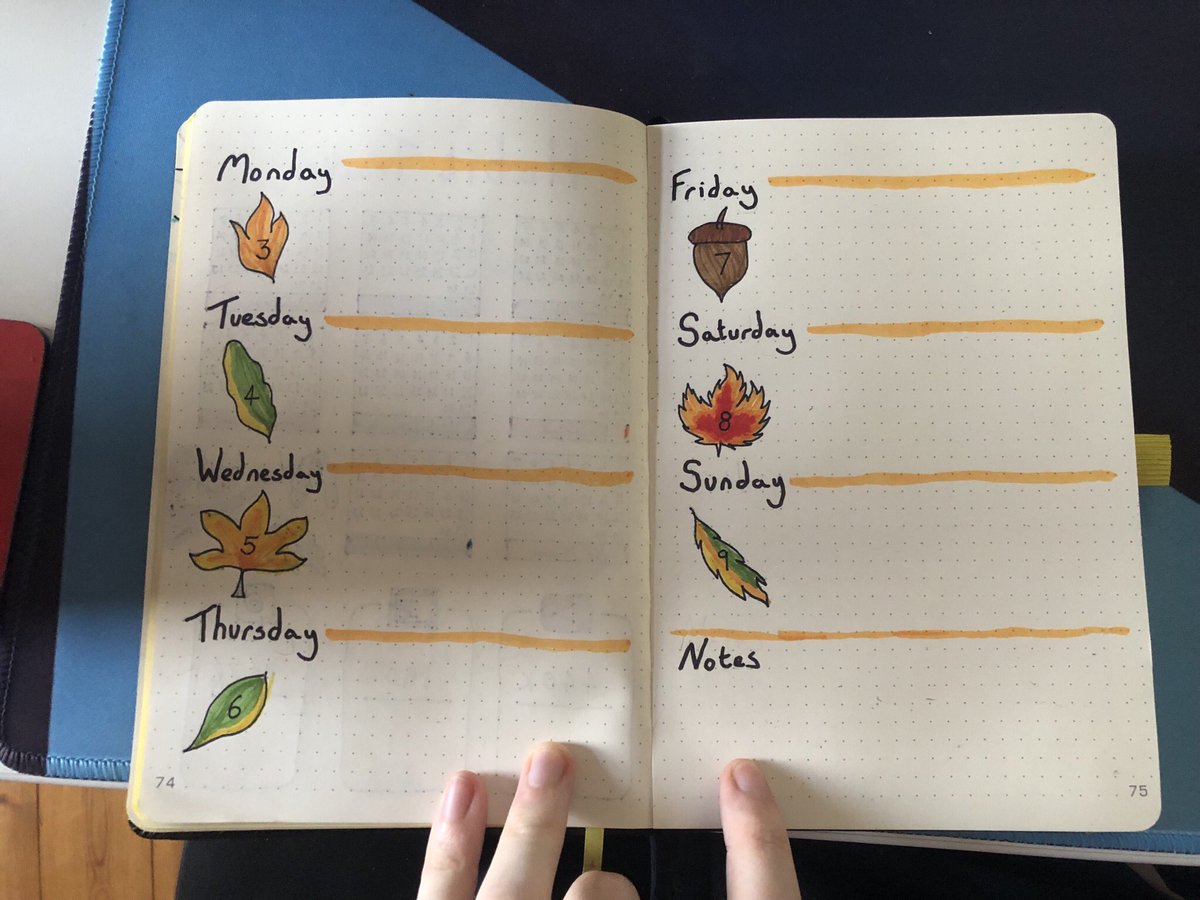 Monday
3
Tuesday
4
Wednesday
5
Thursday
6
74
Friday
7
Saturday
8
Sunday
9
Notes
75